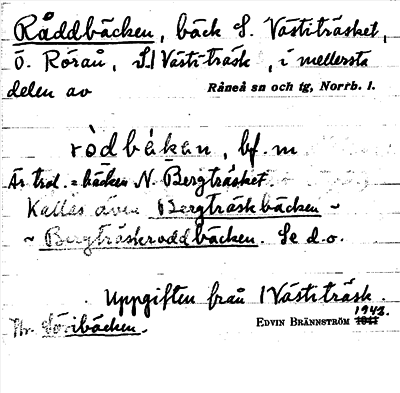 Råddbäcken, bäck S. Västiträsket,
ö. Rörån, S/ Västiträsk, i mellersta
delen av Råneå sn och tg, Norrb. l.
ròdbäkən, bf. m
Är trol. = bäcken N. Bergträsket.
Kallas även Bergträskbäcken ~
~ Bergträskroddbäcken. Se d.o.
Uppgiften från 1 Västiträsk.
1943.
EDVIN BRÄNNSTRÖM 1941